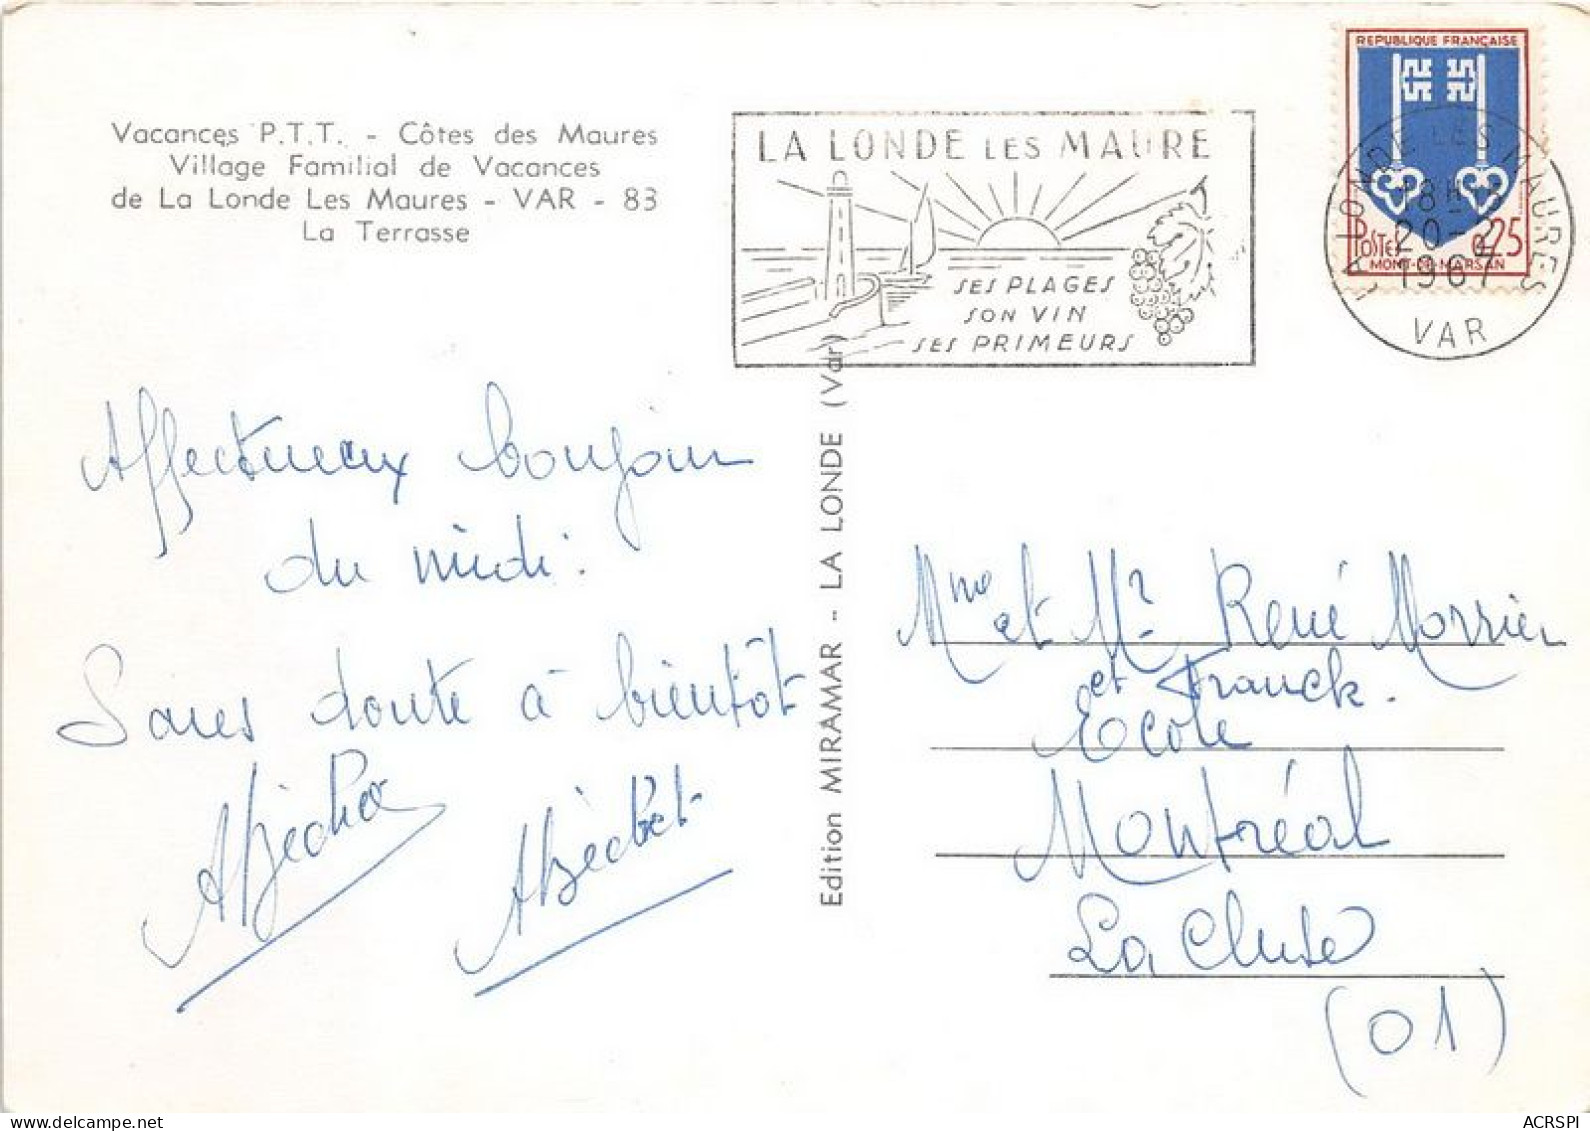 Vacances P.T.T. - Côtes des Maures
Village Familial de Vacances
de La Londe Les Maures - VAR - 83
La Terrasse
LA LONDE LES MAURE
SES PLAGES
SON VIN
SES PRIMEURS
REPUBLIQUE FRANÇAISE
POSTES 0,25
MONT-DE-MARSAN
LA LONDE LES MAURES
18H
20-2
1967
VAR
Affectueux bonjour
du midi.
Sans doute à bientôt
Edition MIRAMAR - LA LONDE (Var)
Mme et Mr René Morrier
et Franck.
Ecole
Montréal
La Cluse
(01)
www.delcampe.net
ACRSPI